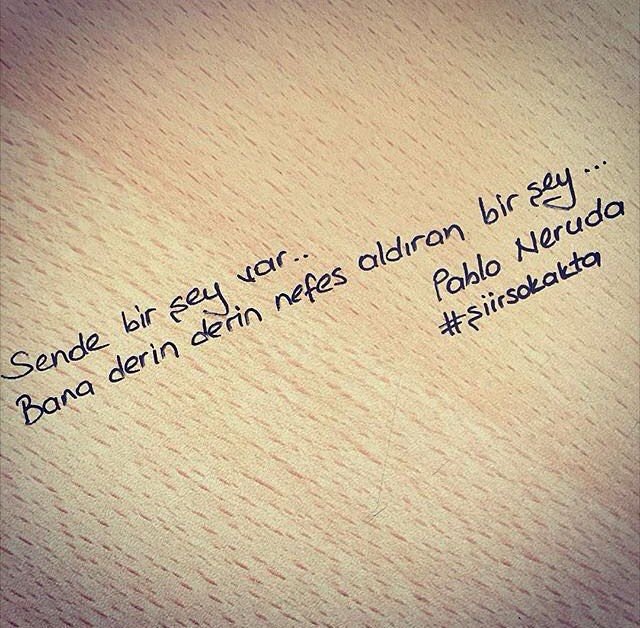 Sende bir şey var..
Bana derin derin nefes aldıran bir şey...
Pablo Neruda
#şiirsokakta